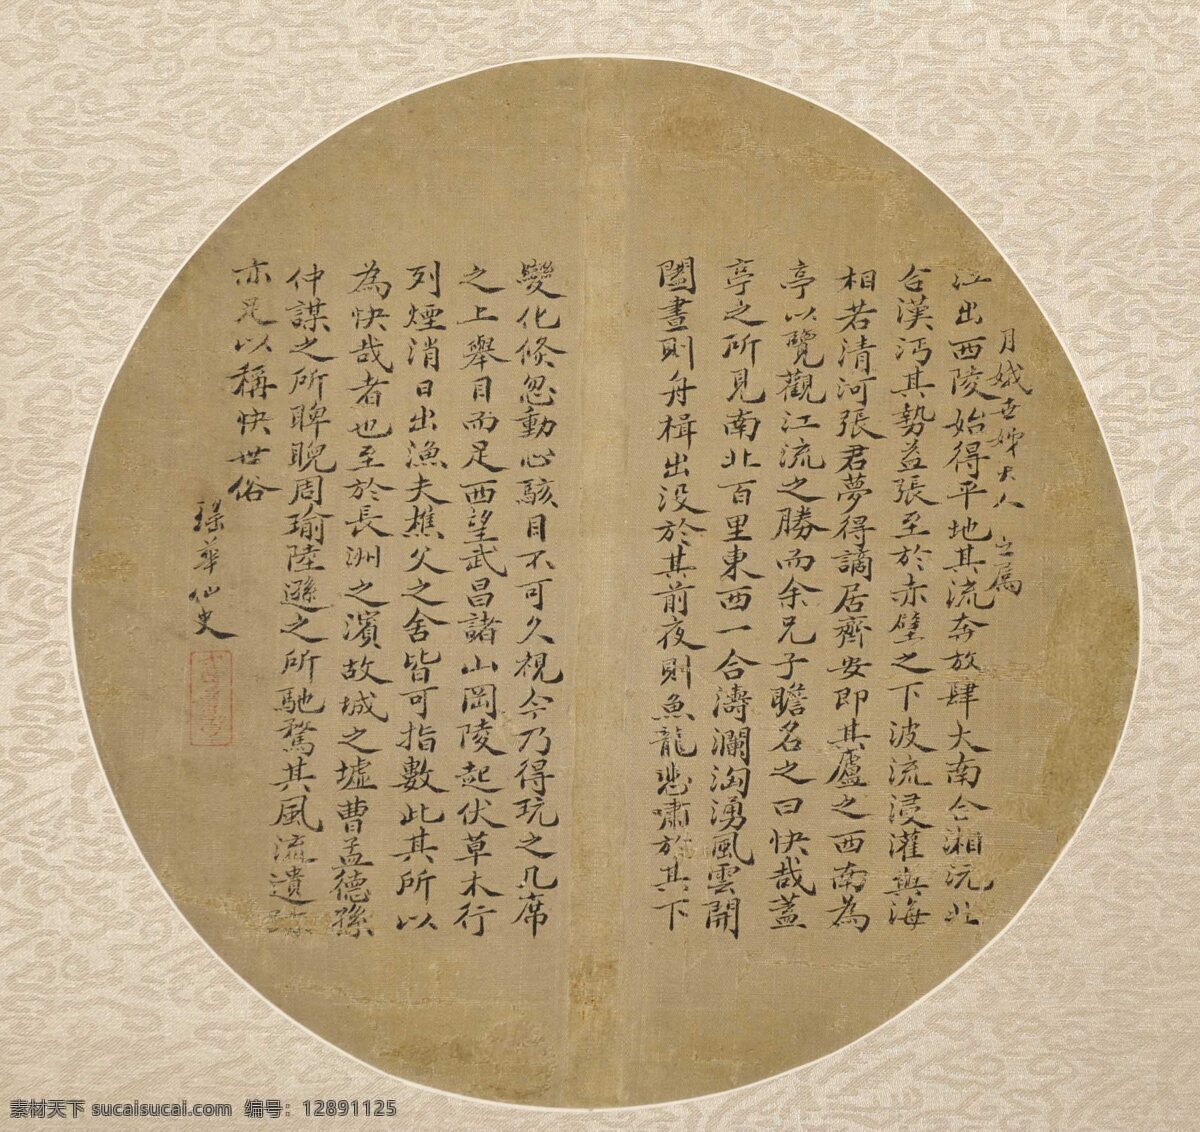 月娥姊大人 之屬
江出西陵始得平地其流奔放肆大南合湘沅北
合漢沔其勢益張至於赤壁之下波流浸灌與海
相若清河張君夢得謫居齊安即其廬之西南為
亭以覽觀江流之勝而余兄子瞻名之曰快哉蓋
亭之所見南北百里東西一合濤瀾洶湧風雲開
闔晝則舟楫出没於其前夜則魚龍悲嘯於其下
變化倏忽動心駭目不可久視今乃得玩之几席
之上舉目而足西望武昌諸山岡陵起伏草木行
列煙消日出漁夫樵父之舍皆可指數此其所以
為快哉者也至於長洲之濱故城之墟曹孟德孫
仲謀之所睥睨周瑜陸遜之所馳騖其風流遺跡
亦足以稱快世俗
瑤華仙史
素材天下 sucaisucai.com 编号：12891125